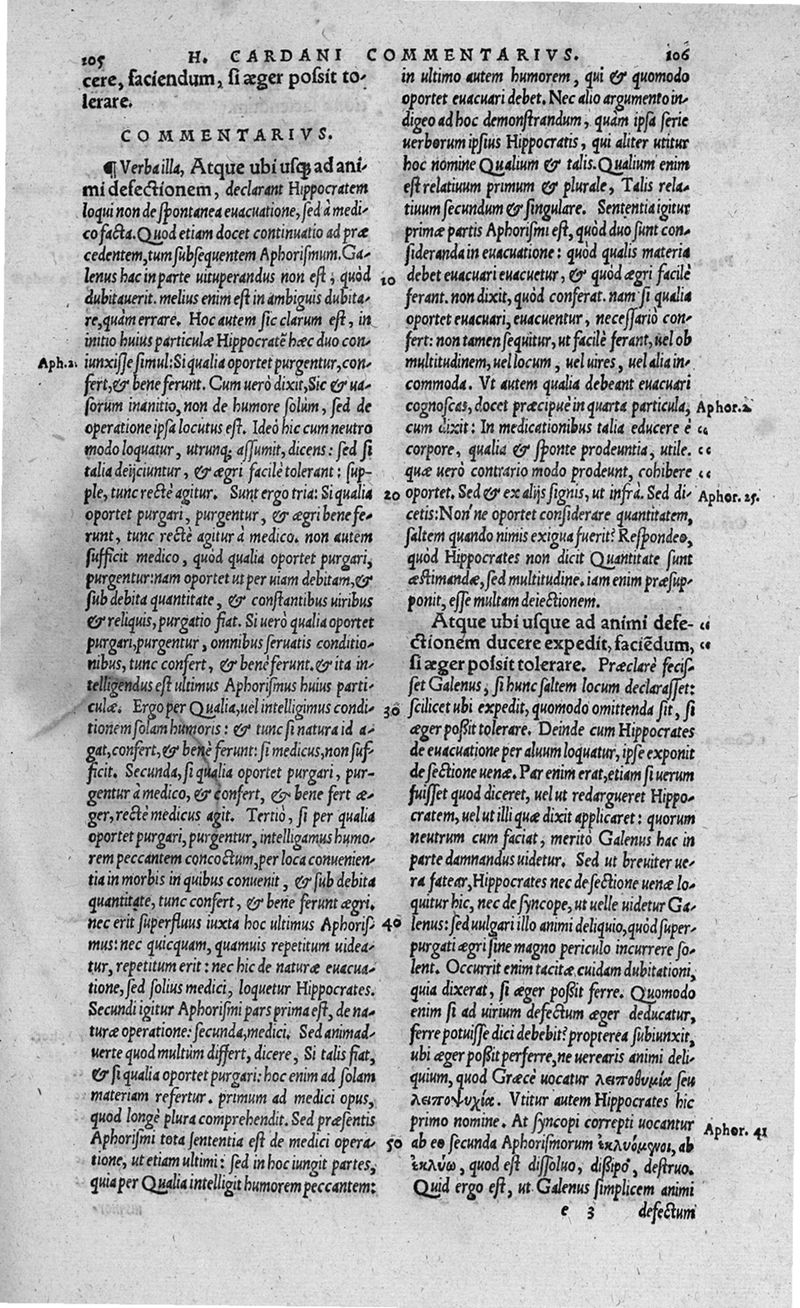 105 H. CARDANI COMMENTARIVS. 106
cere, faciendum, si æger possit to-
lerare.
COMMENTARIVS.
¶ Verba illa, Atque ubi usq; ad ani-
mi defectionem, declarant Hippocratem
loqui non de spontanea euacuatione, sed à medi-
co facta. Quod etiam docet continuatio ad præ
cedentem, tum subsequentem Aphorismum. Ga-
lenus hac in parte uituperandus non est, quòd
dubitauerit. melius enim est in ambiguis dubita-
re, quàm errare. Hoc autem sic clarum est, in
initio huius particulæ Hippocratẽ hæc duo con-
Aph. 2. iunxisse simul: Si qualia oportet purgentur, con-
fert, & bene ferunt. Cum uerò dixit, Sic & ua-
sorum inanitio, non de humore solùm, sed de
operatione ipsa locutus est. Ideò hic cum neutro
modo loquatur, utrunq; assumit, dicens: sed si
talia deijciuntur, & ægri facilè tolerant: sup-
ple, tunc rectè agitur. Sunt ergo tria: Si qualia
oportet purgari, purgentur, & ægri bene fe-
runt, tunc rectè agitur à medico. non autem
sufficit medico, quòd qualia oportet purgari,
purgentur: nam oportet ut per uiam debitam, &
sub debita quantitate, & constantibus uiribus
& reliquis, purgatio fiat. Si uerò qualia oportet
purgari, purgentur, omnibus seruatis conditio-
nibus, tunc confert, & benè ferunt. & ita in-
telligendus est ultimus Aphorismus huius parti-
culæ. Ergo per Qualia, uel intelligimus condi-
tionem solam humoris: & tunc si natura id a-
gat, confert, & benè ferunt: si medicus, non suf-
ficit. Secunda, si qualia oportet purgari, pur-
gentur à medico, & confert, & bene fert æ-
ger, rectè medicus agit. Tertiò, si per qualia
oportet purgari, purgentur, intelligamus humo-
rem peccantem concoctum, per loca conuenien-
tia in morbis in quibus conuenit, & sub debita
quantitate, tunc confert, & bene ferunt ægri.
nec erit superfluus iuxta hoc ultimus Aphoris-
mus: nec quicquam, quamuis repetitum uidea-
tur, repetitum erit: nec hic de naturæ euacua-
tione, sed solius medici, loquetur Hippocrates.
Secundi igitur Aphorismi pars prima est, de na-
turæ operatione: secunda, medici. Sed animad-
uerte quod multùm differt, dicere, Si talis fiat,
& si qualia oportet purgari: hoc enim ad solam
materiam refertur. primum ad medici opus,
quod longè plura comprehendit. Sed præsentis
Aphorismi tota sententia est de medici opera-
tione, ut etiam ultimi: sed in hoc iungit partes,
quia per Qualia intelligit humorem peccantem:
in ultimo autem humorem, qui & quomodo
oportet euacuari debet. Nec alio argumento in-
digeo ad hoc demonstrandum, quàm ipsa serie
uerborum ipsius Hippocratis, qui aliter utitur
hoc nomine Qualium & talis. Qualium enim
est relatiuum primum & plurale, Talis rela-
tiuum secundum & singulare. Sententia igitur
primæ partis Aphorismi est, quòd duo sunt con-
sideranda in euacuatione: quòd qualis materia
10 debet euacuari euacuetur, & quòd ægri facilè
ferant. non dixit, quòd conferat. nam si qualia
oportet euacuari, euacuentur, necessariò con-
fert: non tamen sequitur, ut facilè ferant, uel ob
multitudinem, uel locum, uel uires, uel alia in-
commoda. Vt autem qualia debeant euacuari
cognoscas, docet præcipuè in quarta particula, Aphor. 2.
cum dixit: In medicationibus talia educere è “
corpore, qualia & sponte prodeuntia, utile. “
quæ uerò contrario modo prodeunt, cohibere “
20 oportet. Sed & ex alijs signis, ut infrà. Sed di- Aphor. 25.
cetis: Non'ne oportet considerare quantitatem,
saltem quando nimis exigua fuerit? Respondeo,
quòd Hippocrates non dicit Quantitate sunt
æstimandæ, sed multitudine. iam enim præsup-
ponit, esse multam deiectionem.
Atque ubi usque ad animi defe- “
ctionem ducere expedit, faciẽdum, “
si æger possit tolerare. Præclarè fecis-
set Galenus, si hunc saltem locum declarasset:
30 scilicet ubi expedit, quomodo omittenda sit, si
æger poßit tolerare. Deinde cum Hippocrates
de euacuatione per aluum loquatur, ipse exponit
de sectione uenæ. Par enim erat, etiam si uerum
fuisset quod diceret, uel ut redargueret Hippo-
cratem, uel ut illi quæ dixit applicaret: quorum
neutrum cum faciat, meritò Galenus hac in
parte damnandus uidetur. Sed ut breuiter ue-
ra fatear, Hippocrates nec de sectione uenæ lo-
quitur hic, nec de syncope, ut uelle uidetur Ga-
40 lenus: sed uulgari illo animi deliquio, quòd super-
purgati ægri sine magno periculo incurrere so-
lent. Occurrit enim tacitæ cuidam dubitationi,
quia dixerat, si æger poßit ferre. Quomodo
enim si ad uirium defectum æger deducatur,
ferre potuisse dici debebit? propterea subiunxit,
ubi æger poßit perferre, ne uerearis animi deli-
quium, quod Græcè uocatur λειποθυμία seu
λειποψυχία. Vtitur autem Hippocrates hic
primo nomine. At syncopi correpti uocantur Aphor. 41
50 ab eo secunda Aphorismorum ἐκλυόμενοι, ab
ἐκλύω, quod est dissoluo, dißipo, destruo.
Quid ergo est, ut Galenus simplicem animi
e 3 defectum